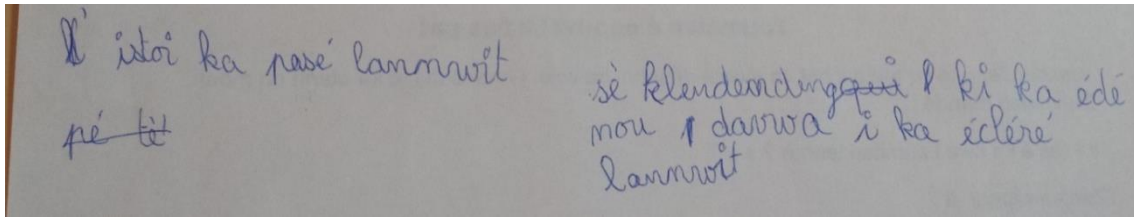 l' istoi ka pasé lannwoit
pé tè
sè klendending qui ki ka édé
nou davwa i ka écléré
lannwoit